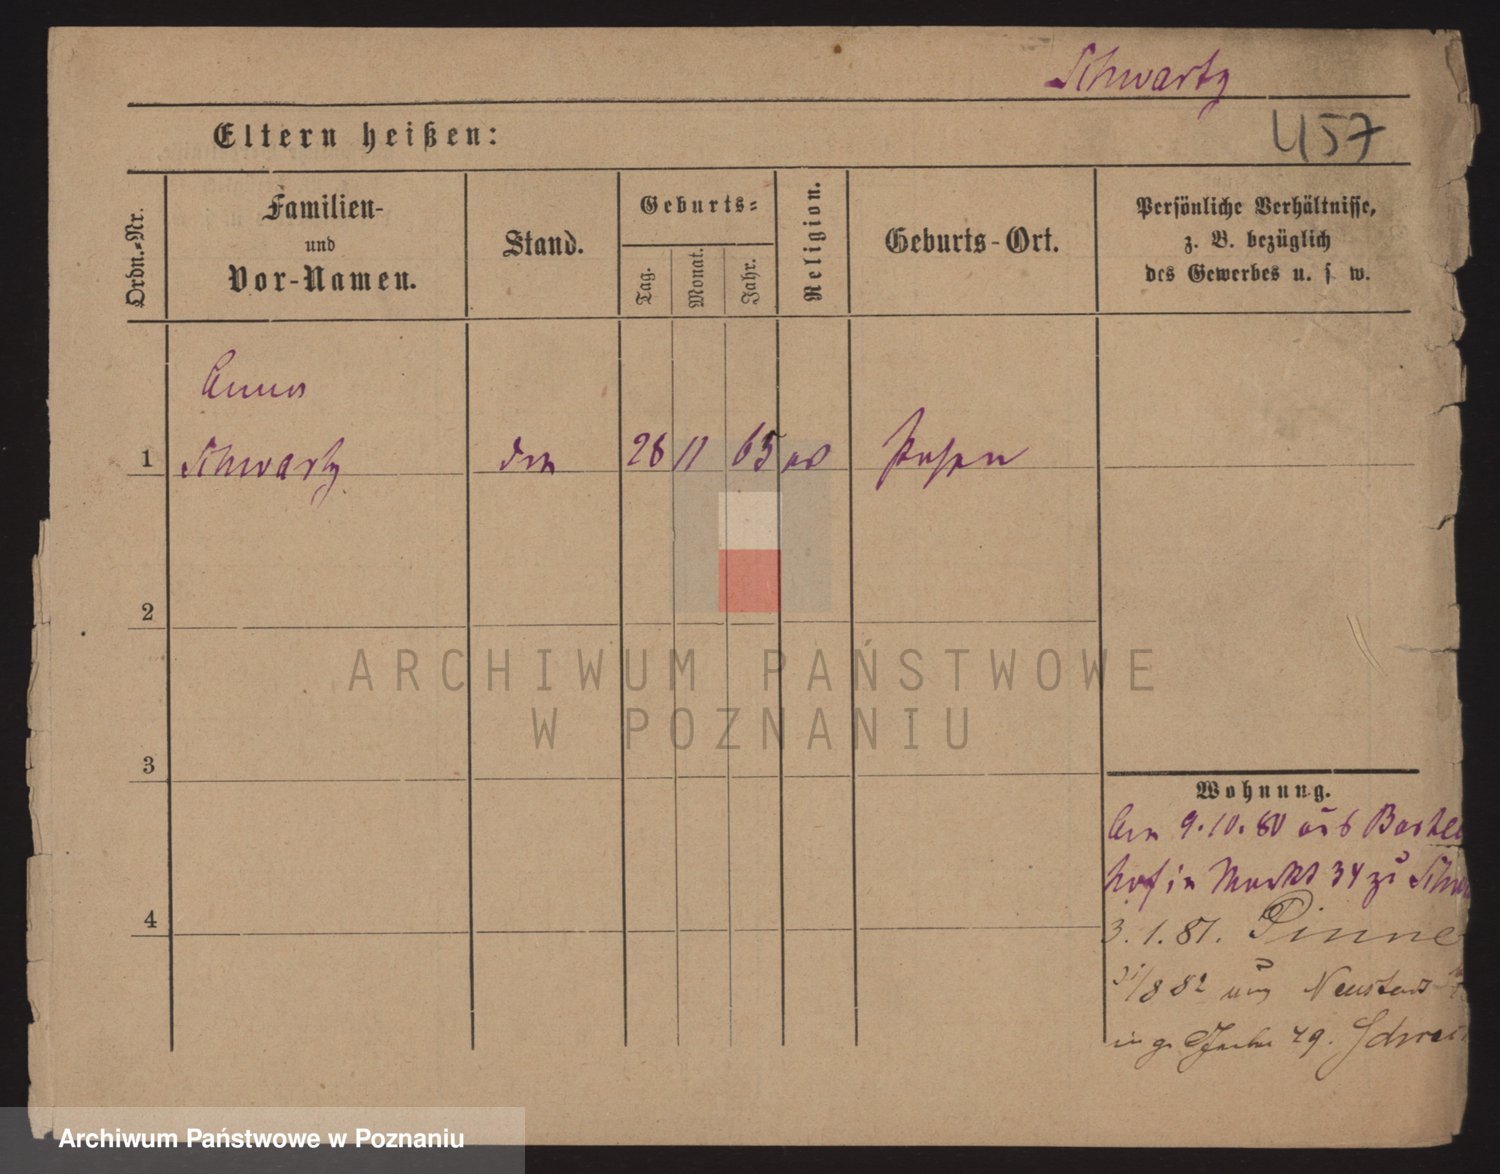 Schwartz
Eltern heißen:
457
Ordn.-Nr.
Familien-
und
Vor-Namen.
Stand.
Geburts-
Tag.
Monat.
Jahr.
Religion.
Geburts-Ort.
Persönliche Verhältnisse,
z. B. bezüglich
des Gewerbes u. s w.
Anna
1 Schwartz 28 11 65 Posen
2
3
4
Wohnung.
9.10.80 aus
hof in Markt 34 zu
3.1.81. Pinne
31/8 82 Neustadt
in 49.
ARCHIWUM PAŃSTWOWE
W POZNANIU
Archiwum Państwowe w Poznaniu